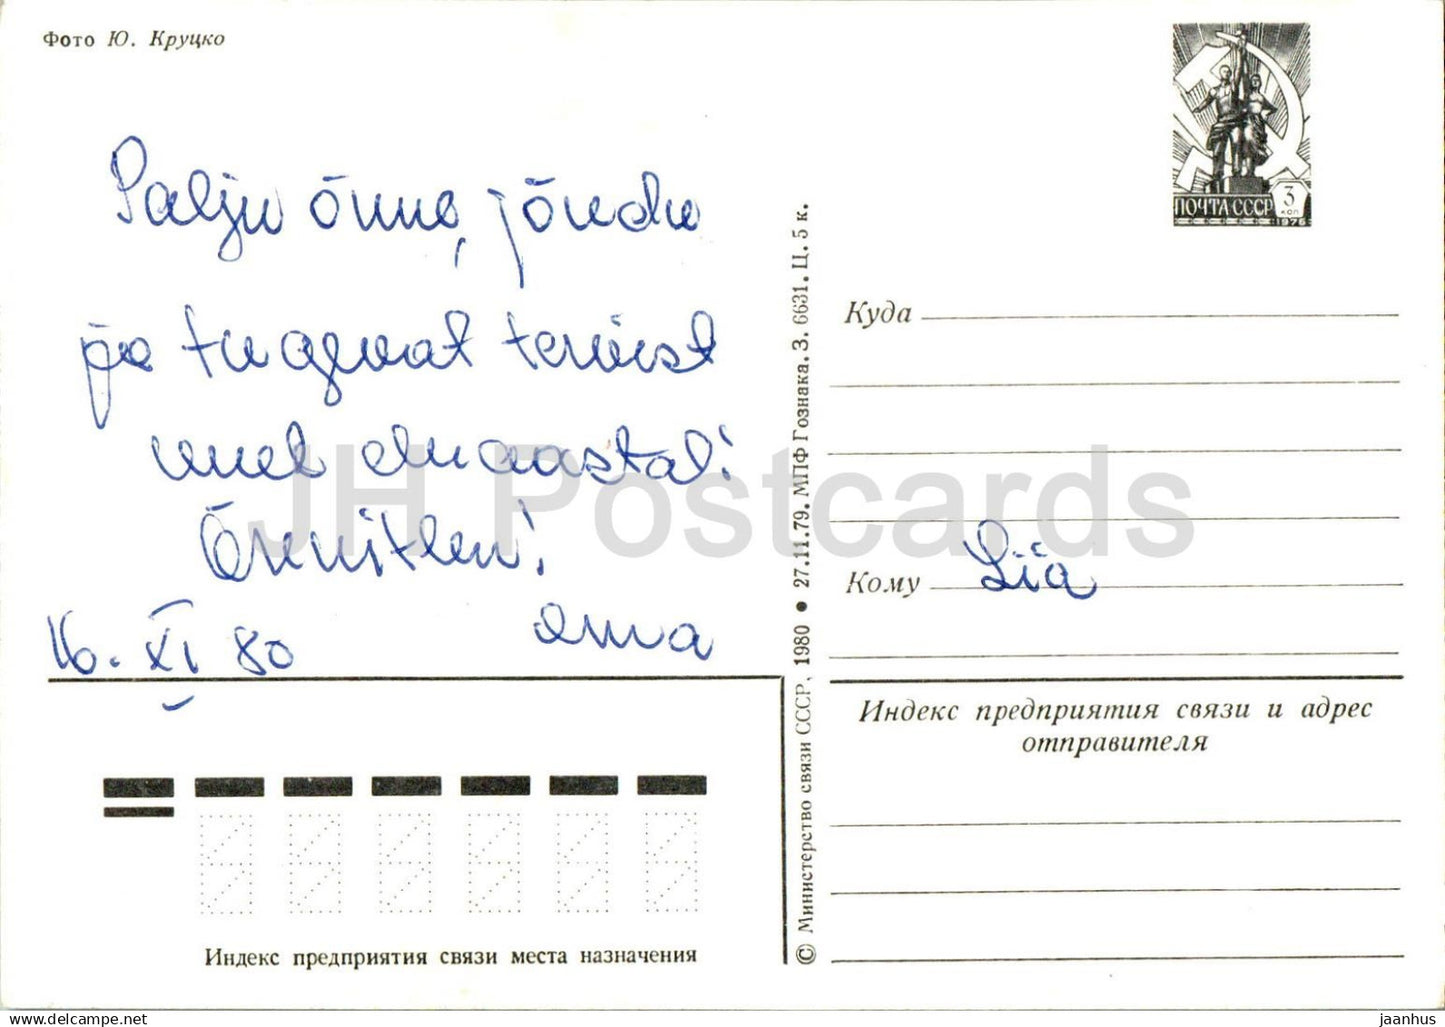 Фото Ю. Круцко
ПОЧТА СССР 3 КОП 1976
Palju õnne, jõudu
ja tugevat tervist
uuel eluaastal!
Õnnitleu!
16. XI 80
Куда
Кому Liia
Индекс предприятия связи и адрес
отправителя
© Министерство связи СССР, 1980 • 27.11.79. МПФ Гознака. З. 6631. Ц. 5 к.
Индекс предприятия связи места назначения
JH Postcards
jaanhus